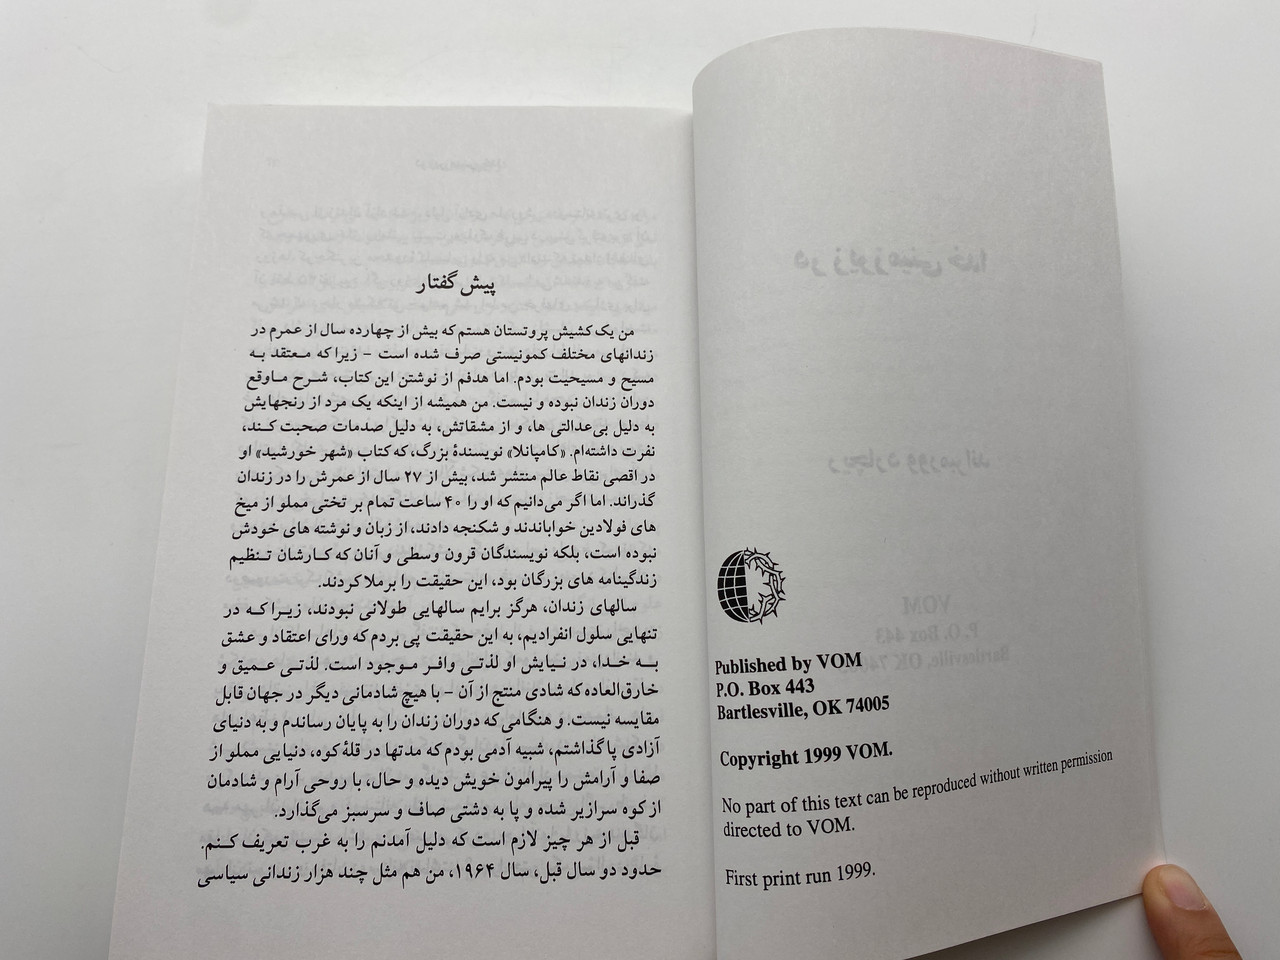 Published by VOM
P.O. Box 443
Bartlesville, OK 74005
Copyright 1999 VOM.
No part of this text can be reproduced without written permission
directed to VOM.
First print run 1999.
پیش گفتار
من یک کشیش پروتستان هستم که بیش از چهارده سال از عمرم در
زندانهای مختلف کمونیستی صرف شده است – زیرا که معتقد به
مسیح و مسیحیت بودم. اما هدفم از نوشتن این کتاب، شرح ماوقع
دوران زندان نبوده و نیست. من همیشه از اینکه یک مرد از رنجهایش
به دلیل بی‌عدالتی ها، و از مشقاتش، به دلیل صدمات صحبت کند،
نفرت داشته‌ام. «کامپانلا» نویسندهٔ بزرگ، که کتاب «شهر خورشید» او
در اقصی نقاط عالم منتشر شد، بیش از ۲۷ سال از عمرش را در زندان
گذراند. اما اگر می‌دانیم که او را ۴۰ ساعت تمام بر تختی مملو از میخ
های فولادین خواباندند و شکنجه دادند، از زبان و نوشته های خودش
نبوده است، بلکه نویسندگان قرون وسطی و آنان که کارشان تنظیم
زندگینامه های بزرگان بود، این حقیقت را برملا کردند.
سالهای زندان، هرگز برایم سالهایی طولانی نبودند، زیرا که در
تنهایی سلول انفرادیم، به این حقیقت پی بردم که ورای اعتقاد و عشق
به خدا، در نیایش او لذتی وافر موجود است. لذتی عمیق و
خارق‌العاده که شادی منتج از آن – با هیچ شادمانی دیگر در جهان قابل
مقایسه نیست. و هنگامی که دوران زندان را به پایان رساندم و به دنیای
آزادی پا گذاشتم، شبیه آدمی بودم که مدتها در قلهٔ کوه، دنیایی مملو از
صفا و آرامش را پیرامون خویش دیده و حال، با روحی آرام و شادمان
از کوه سرازیر شده و پا به دشتی صاف و سرسبز می‌گذارد.
قبل از هر چیز لازم است که دلیل آمدنم را به غرب تعریف کنم.
حدود دو سال قبل، سال ۱۹۶۴، من هم مثل چند هزار زندانی سیاسی